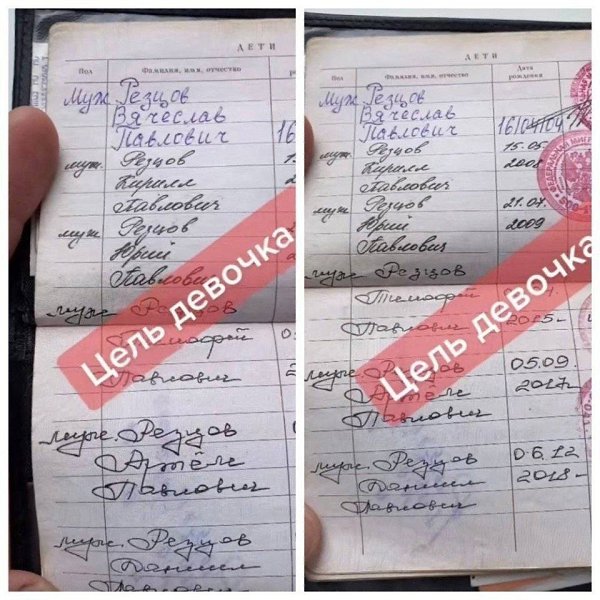 ДЕТИ
Пол Фамилия, имя, отчество
муж Резцов
Вячеслав
Павлович 16
муж Резцов
Кирилл
Павлович
муж Резцов
Юрий
Павлович
муж Резцов
Тимофей
Павлович
муж. Резцов
Артём
Павлович
муж. Резцов
Даниил
Цель девочка
ДЕТИ
Пол Фамилия, имя, отчество Дата рождения
муж Резцов
Вячеслав
Павлович 16/04/04
муж Резцов 15.05
Кирилл 2008
Павлович
муж Резцов 21.07.
Юрий 2009
Павлович
муж Резцов
Тимофей
Павлович 2015-
муж. Резцов 05.09.
Артём 2017-
Павлович
муж. Резцов 06.12
Даниил 2018-
Павлович
Цель девочка